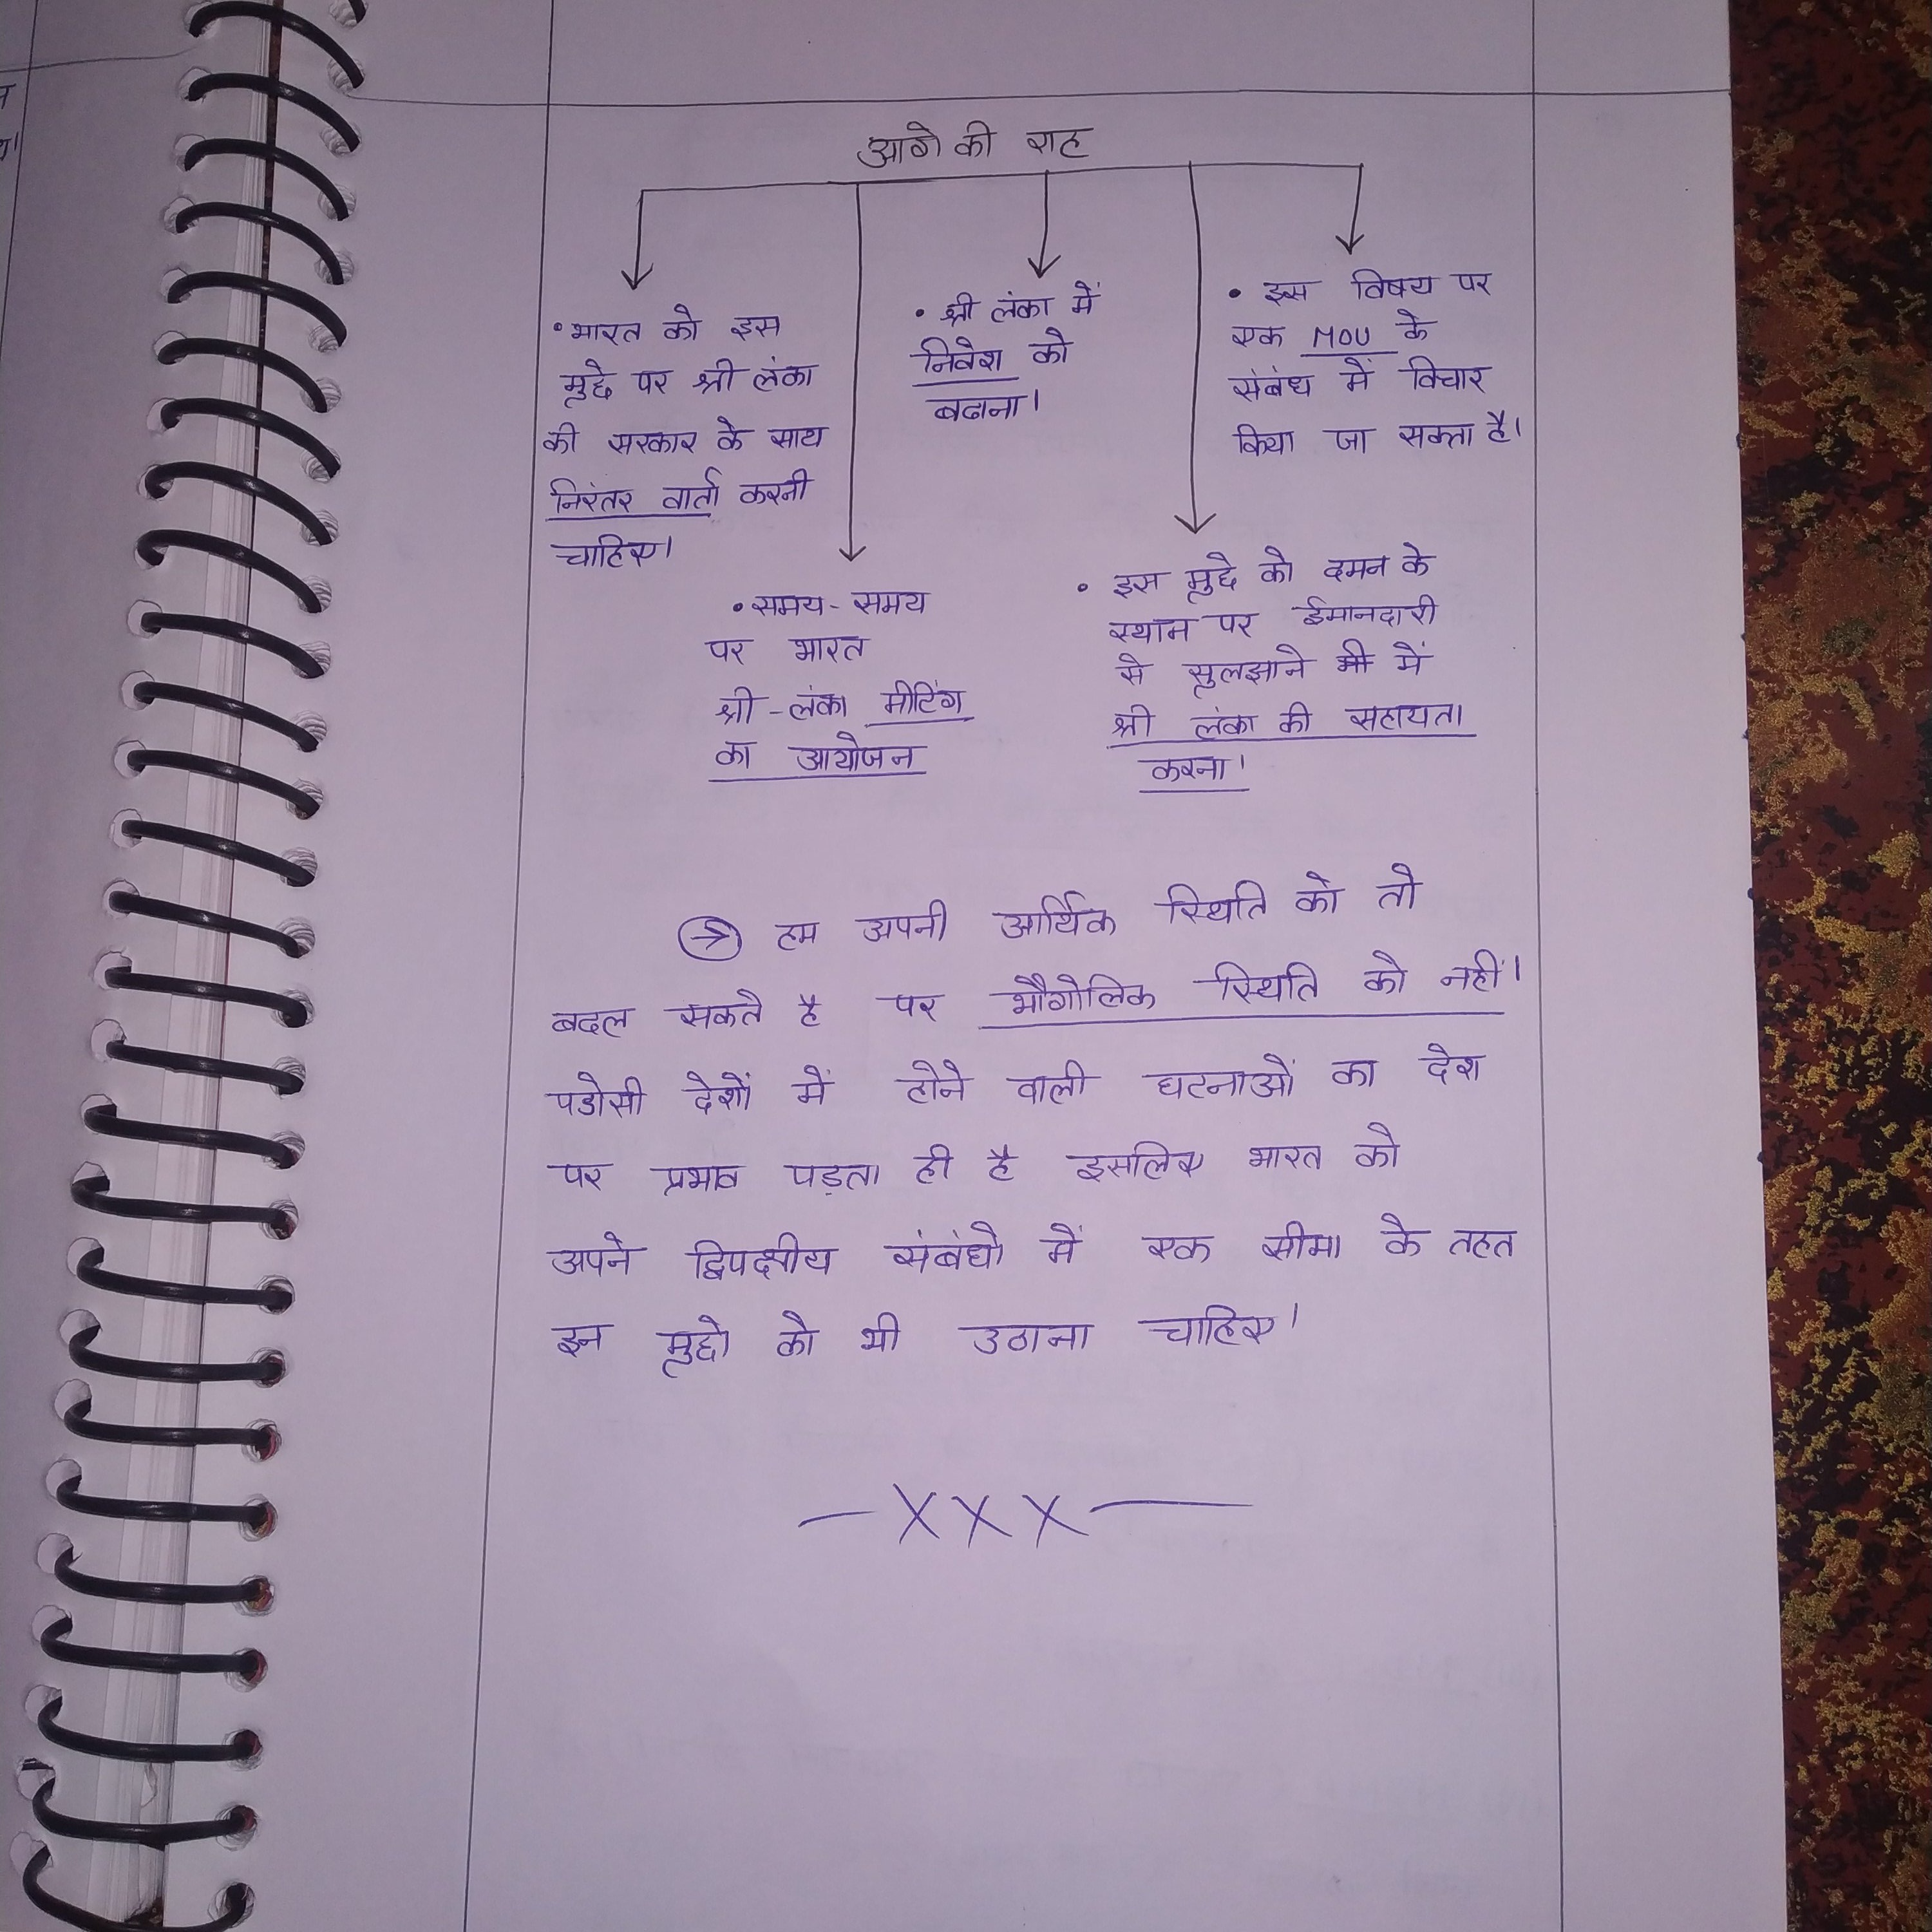 आगे की राह
• भारत को इस
मुद्दे पर श्री लंका
की सरकार के साथ
निरंतर वार्ता करनी
चाहिए।
• समय-समय
पर भारत
श्री-लंका मीटिंग
का आयोजन
• श्री लंका में
निवेश को
बढाना।
• इस मुद्दे को दमन के
स्थान पर ईमानदारी
से सुलझाने में
श्री लंका की सहायता
करना।
• इस विषय पर
एक MOU के
संबंध में विचार
किया जा सकता है।
→ हम अपनी आर्थिक स्थिति को तो
बदल सकते है पर भौगोलिक स्थिति को नहीं।
पडोसी देशों में होने वाली घटनाओं का देश
पर प्रभाव पड़ता ही है इसलिए भारत को
अपने द्विपक्षीय संबंधो में एक सीमा के तहत
इन मुद्दो को भी उठाना चाहिए।
—XXX—